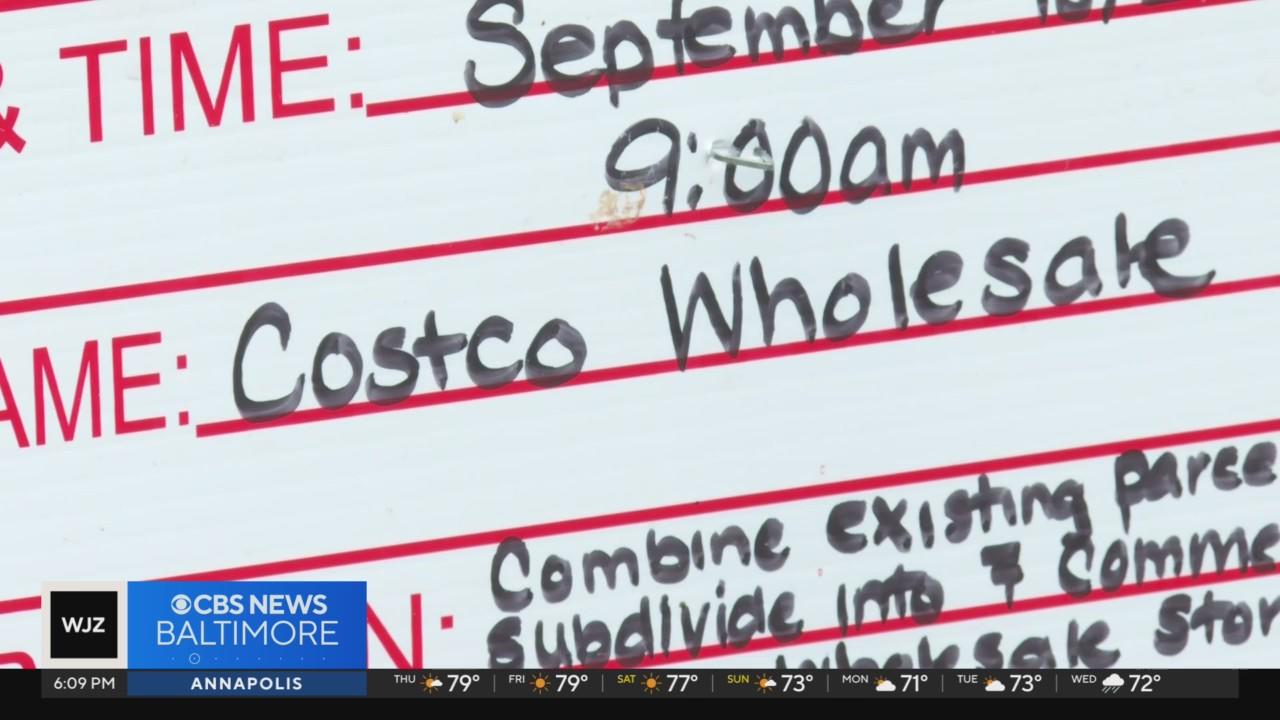 & TIME: September
9:00am
AME: Costco Wholesale
N: Combine existing parce
subdivide into 7 Comme
wholesale stor
WJZ
CBS NEWS
BALTIMORE
6:09 PM ANNAPOLIS THU 79° FRI 79° SAT 77° SUN 73° MON 71° TUE 73° WED 72°